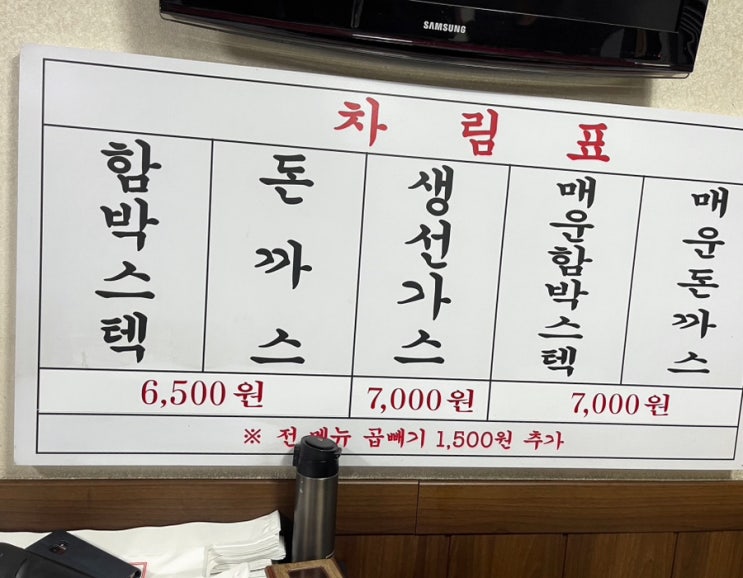 SAMSUNG
차림표
함박스텍
돈까스
생선가스
매운함박스텍
매운돈까스
6,500원
7,000원
7,000원
※ 전 메뉴 곱빼기 1,500원 추가